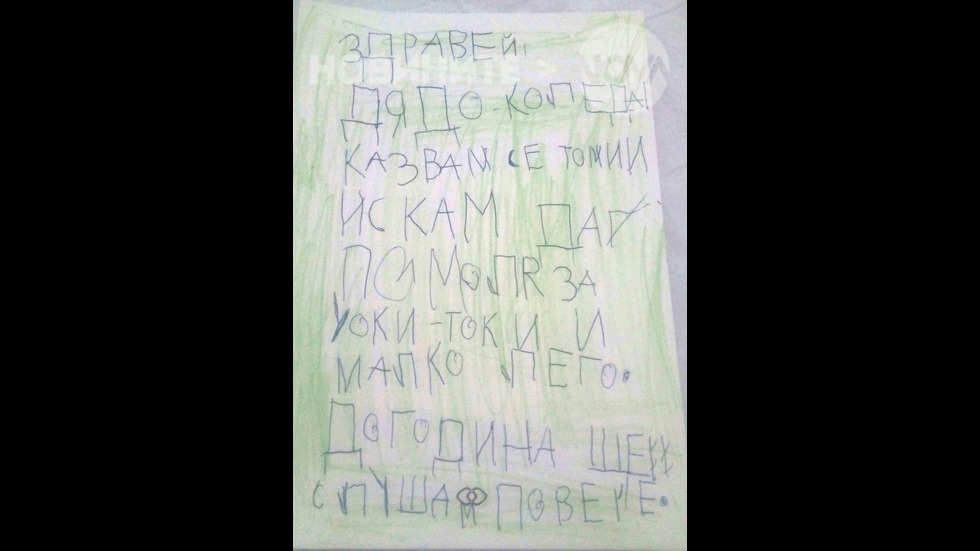 ЗДРАВЕЙ,
ДЯДО-КОЛЕДА!
КАЗВАМ СЕ ТОМИ И
ИСКАМ ДА
ПОМОЛЯ ЗА
УОКИ-ТОКИ И
МАЛКО ЛЕГО.
ДОГОДИНА ЩЕ
СЛУШАМ ПОВЕЧЕ.
НОВИНИТЕ NOVA